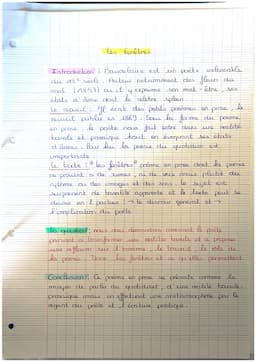 Les fenêtres
Introduction : Baudelaire est un poète inclassable
du 19e siècle. Auteur notamment des fleurs du
mal (1857) où il y exprime son mal-être, ses
états d'âme dont le célèbre spleen.
Le recueil : Il écrit des petits poèmes en prose, le
recueil publié en 1869. Sous la forme du poème
en prose, le poète nous fait entrer dans une réalité
banale et prosaïque tout en évoquant ses états
d'âmes. Pour lui la poésie du quotidien est
importante.
Le texte : "les fenêtres" poème en prose dont la poésie
ne provient ni de rimes, ni de vers mais plutôt des
rythmes ou des images et des sons. Le sujet est
uniquement de banalité apparente et le texte peut se
diviser en parties : → le discours général et →
l'implication du poète
La question : nous nous demanderons comment le poète
parvient à transformer une réalité banale et à proposer
une réflexion sur l'homme, la beauté, le rôle de
la poésie.
Conclusion : Ce poème en prose se présente comme le
moyen de partir du quotidien, d'une réalité banale
prosaïque mais en effectuant une métamorphose par le
regard du poète et l'écriture poétique.